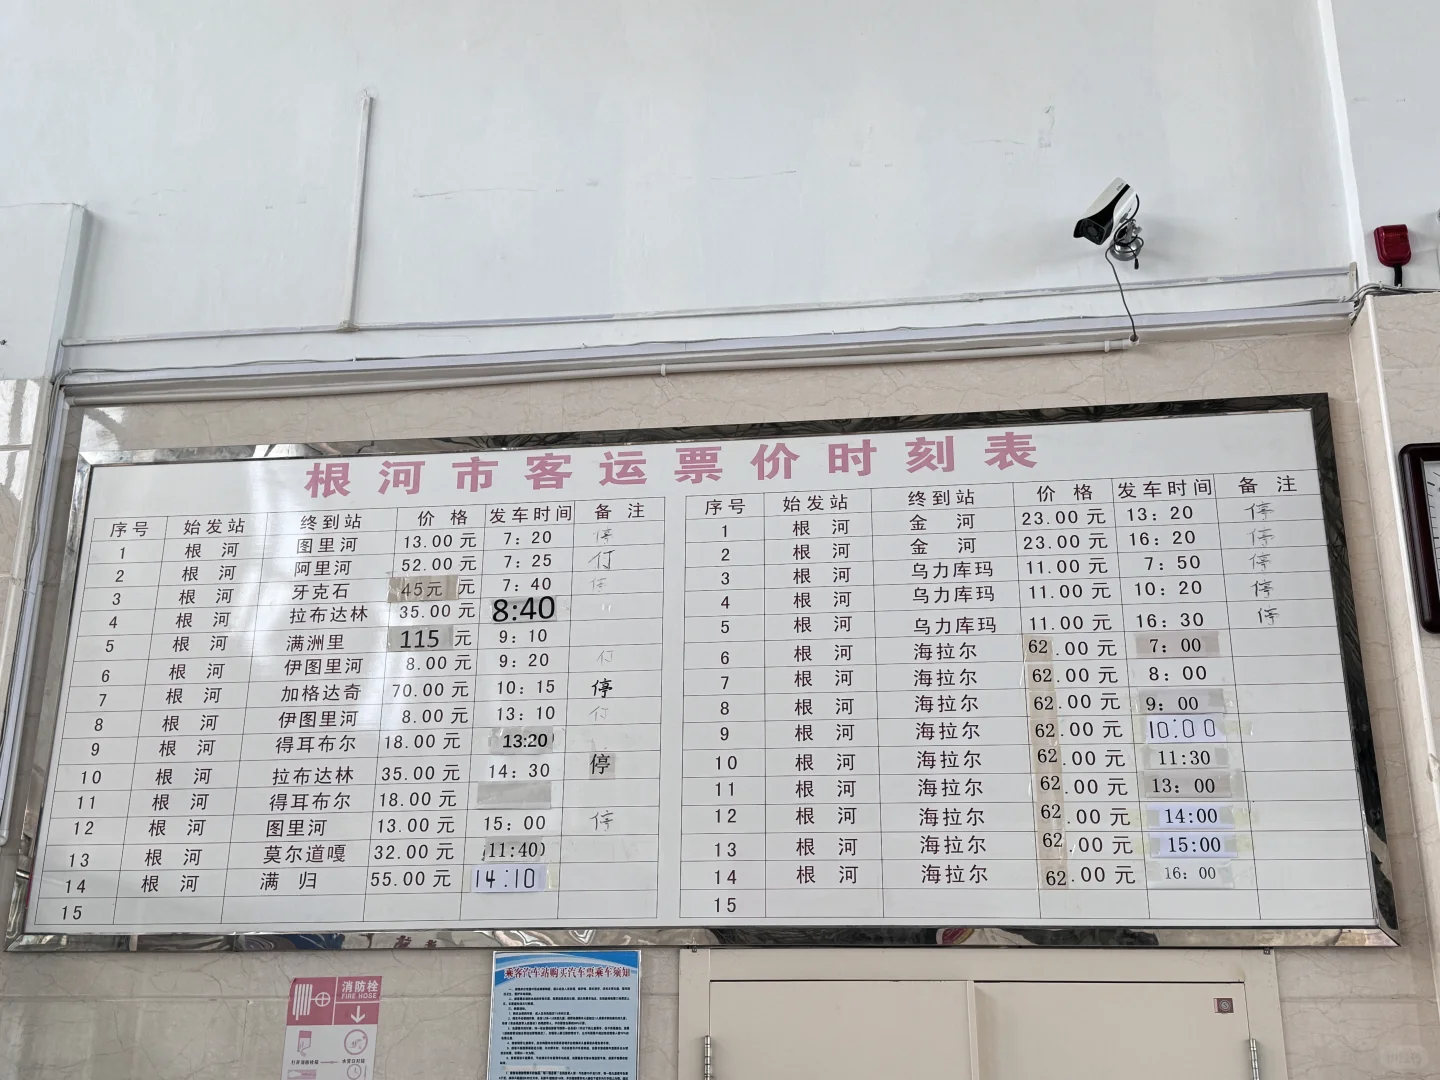 根河市客运票价时刻表
序号 始发站 终到站 价 格 发车时间 备 注
1 根 河 图里河 13.00 元 7:20 停
2 根 河 阿里河 52.00 元 7:25
3 根 河 牙克石 45元 元 7:40 停
4 根 河 拉布达林 35.00 元 8:40
5 根 河 满洲里 115 元 9:10
6 根 河 伊图里河 8.00 元 9:20
7 根 河 加格达奇 70.00 元 10:15 停
8 根 河 伊图里河 8.00 元 13:10
9 根 河 得耳布尔 18.00 元 13:20
10 根 河 拉布达林 35.00 元 14:30 停
11 根 河 得耳布尔 18.00 元
12 根 河 图里河 13.00 元 15:00 停
13 根 河 莫尔道嘎 32.00 元 11:40
14 根 河 满 归 55.00 元 14:10
15
序号 始发站 终到站 价 格 发车时间 备 注
1 根 河 金 河 23.00 元 13:20 停
2 根 河 金 河 23.00 元 16:20 停
3 根 河 乌力库玛 11.00 元 7:50 停
4 根 河 乌力库玛 11.00 元 10:20 停
5 根 河 乌力库玛 11.00 元 16:30 停
6 根 河 海拉尔 62.00 元 7:00
7 根 河 海拉尔 62.00 元 8:00
8 根 河 海拉尔 62.00 元 9:00
9 根 河 海拉尔 62.00 元 10:00
10 根 河 海拉尔 62.00 元 11:30
11 根 河 海拉尔 62.00 元 13:00
12 根 河 海拉尔 62.00 元 14:00
13 根 河 海拉尔 62.00 元 15:00
14 根 河 海拉尔 62.00 元 16:00
15
消防栓
FIRE HOSE
乘客汽车站购买汽车票乘车须知